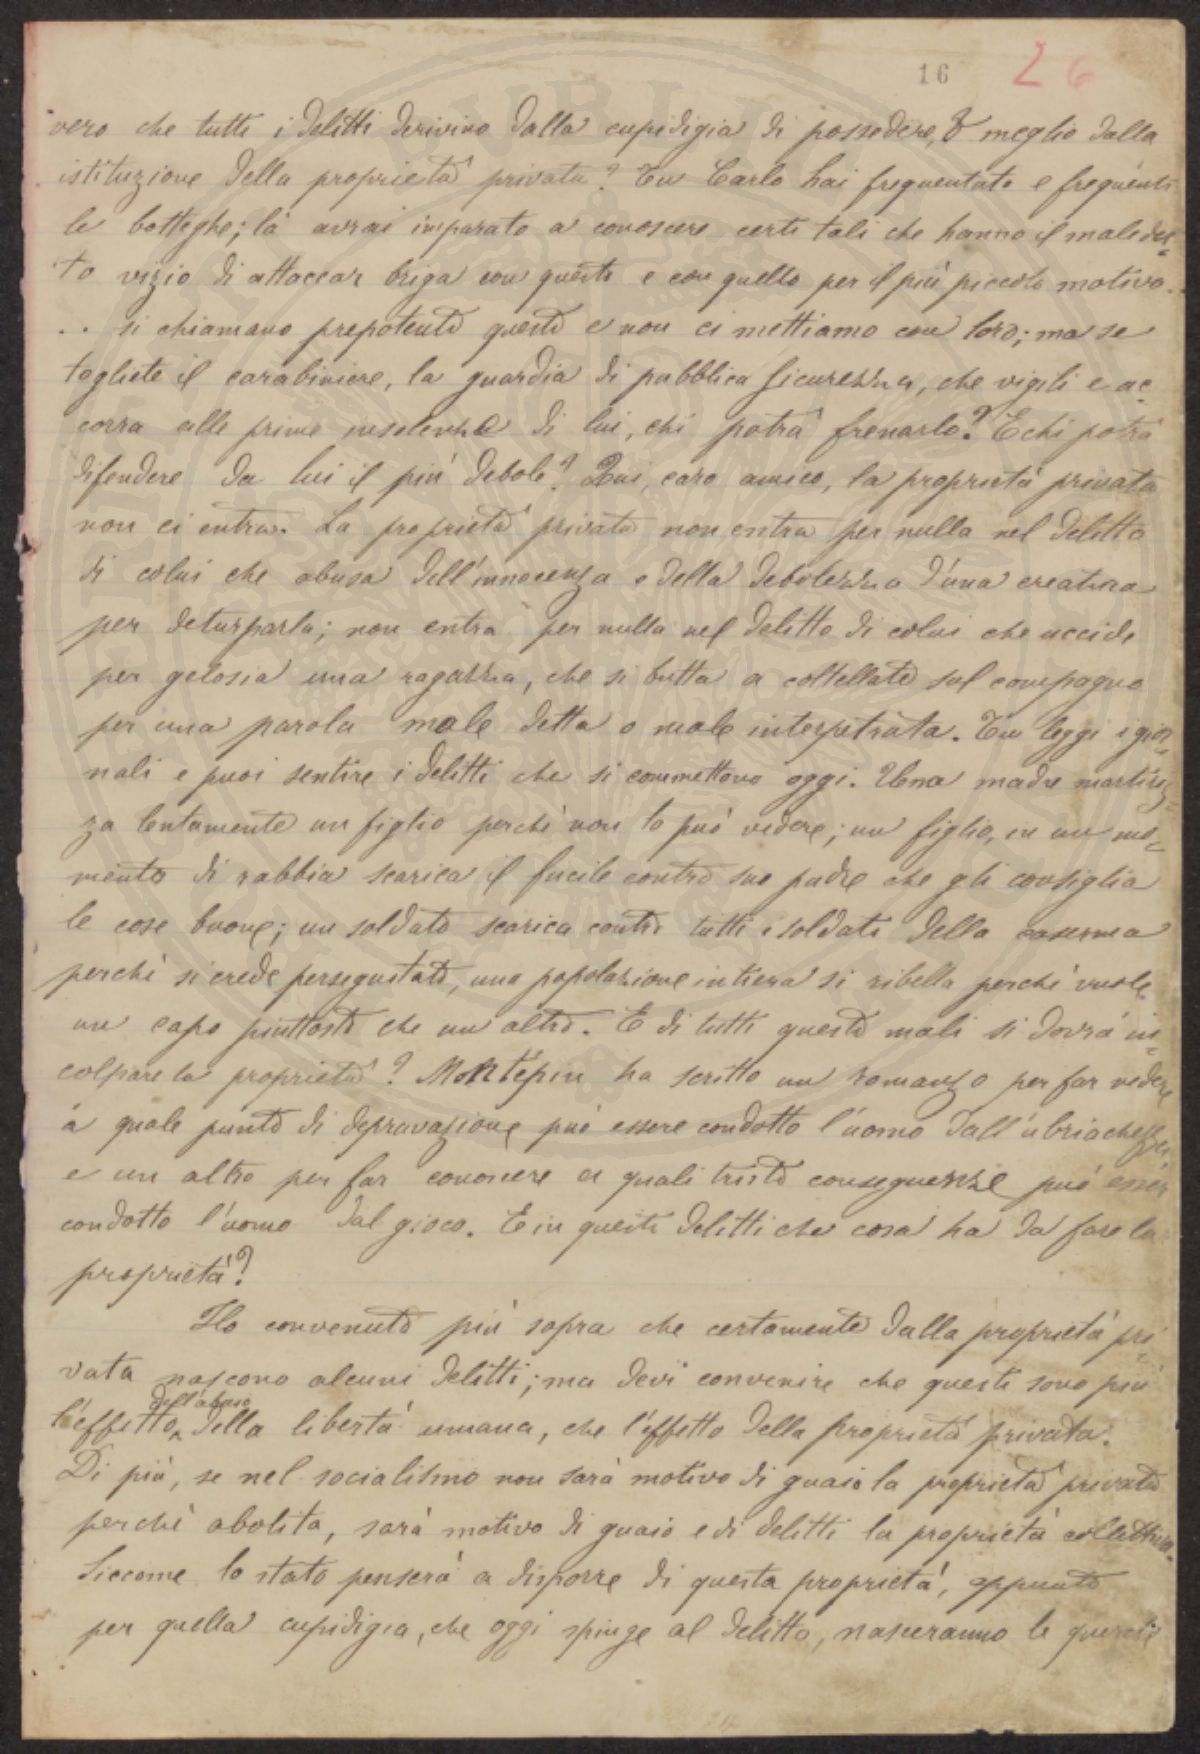 16 26
vero che tutti i delitti derivino dalla cupidigia di possedere, o meglio dalla
istituzione della proprietà privata? Tu Carlo hai frequentato e frequenti
le botteghe; là avrai imparato a conoscere certi tali che hanno il maledet=
to vizio di attaccar briga con questo e con quello per il più piccolo motivo..
.. si chiamano prepotenti questi e non ci mettiamo con loro; ma se
togliete il carabiniere, la guardia di pubblica sicurezza, che vigili e ac=
corra alle prime insolenze di lui, chi potrà frenarlo? E chi potrà
difendere da lui il più debole? Qui, caro amico, la proprietà privata
non ci entra. La proprietà privata non entra per nulla nel delitto
di colui che abusa dell'innocenza o della debolezza d'una creatura
per deturparla; non entra per nulla nel delitto di colui che uccide
per gelosia una ragazza, che si butta a coltellate sul compagno
per una parola male detta o male interpetrata. Tu leggi i gior=
nali e puoi sentire i delitti che si commettono oggi. Una madre martiriz=
za lentamente un figlio perchè non lo può vedere; un figlio, in un mo=
mento di rabbia scarica il fucile contro suo padre che gli consiglia
le cose buone; un soldato scarica contro tutti i soldati della caserma
perchè si crede perseguitato, una popolazione intiera si ribella perchè vuole
un capo piuttosto che un altro. E di tutti questi mali si dovrà in=
colpare la proprietà? Montépin ha scritto un romanzo per far vedere
a quale punto di depravazione può essere condotto l'uomo dall'ubriachezza
e un altro per far conoscere a quali tristi conseguenze può esser
condotto l'uomo dal gioco. E in questi delitti che cosa ha da fare la
proprietà?
Ho convenuto più sopra che certamente dalla proprietà pri=
vata nascono alcuni delitti; ma devi convenire che questi sono più
dell'abuso
l'effetto della libertà umana, che l'effetto della proprietà privata.
Di più, se nel socialismo non sarà motivo di guaio la proprietà privata
perchè abolita, sarà motivo di guaio e di delitti la proprietà collettiva.
Siccome lo stato penserà a disporre di questa proprietà, appunto
per quella cupidigia, che oggi spinge al delitto, nasceranno le querele